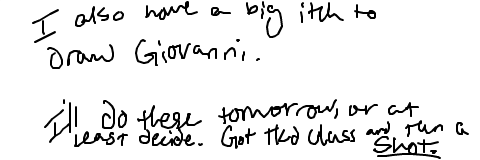 I also have a big itch to
draw Giovanni.
I'll do these tomorrow, or at
least decide. Got tkd class and, run a
shot.